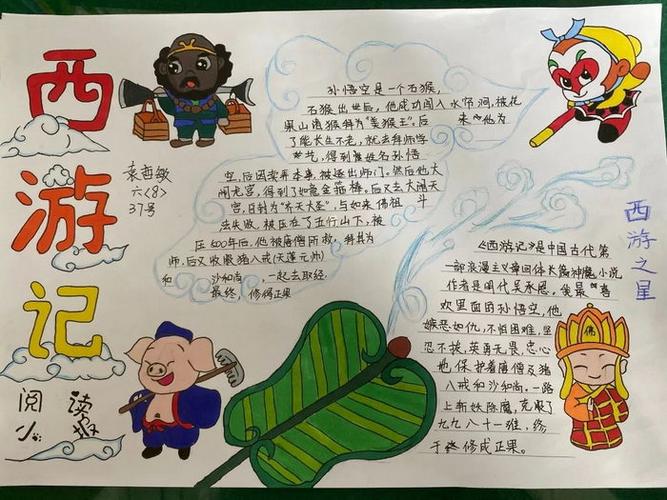 西
游
记
阅读
小报
袁哲敏
六<8>
37号
孙悟空是一个石猴,
石猴出世后,他成功闯入水帘洞,被花
果山诸猴拜为"美猴王",后来他为
了能长生不老,就去拜师学
艺,得到是姓名孙悟
空,后因卖弄本事,被逐出师门。然后他大
闹龙宫,得到了如意金箍棒,后又去大闹天
宫,自封为"齐天大圣",与如来佛祖斗
法失败,被压在了五行山下,被
压500年后,他被唐僧所救,拜其为
师,后又收服猪八戒(天蓬元帅)
和沙和尚,一起去取经,
最终,修得正果
西游之星
《西游记》是中国古代第
一部浪漫主义章回体长篇神魔小说
作者是明代吴承恩,我最喜
欢里面的孙悟空,他
嫉恶如仇,不怕困难,坚
忍不拔,英勇无畏,忠心
地,保护着唐僧及猪
八戒和沙和尚。一路
上斩妖除魔,克服了
九九八十一难,终
于修成正果。
佛